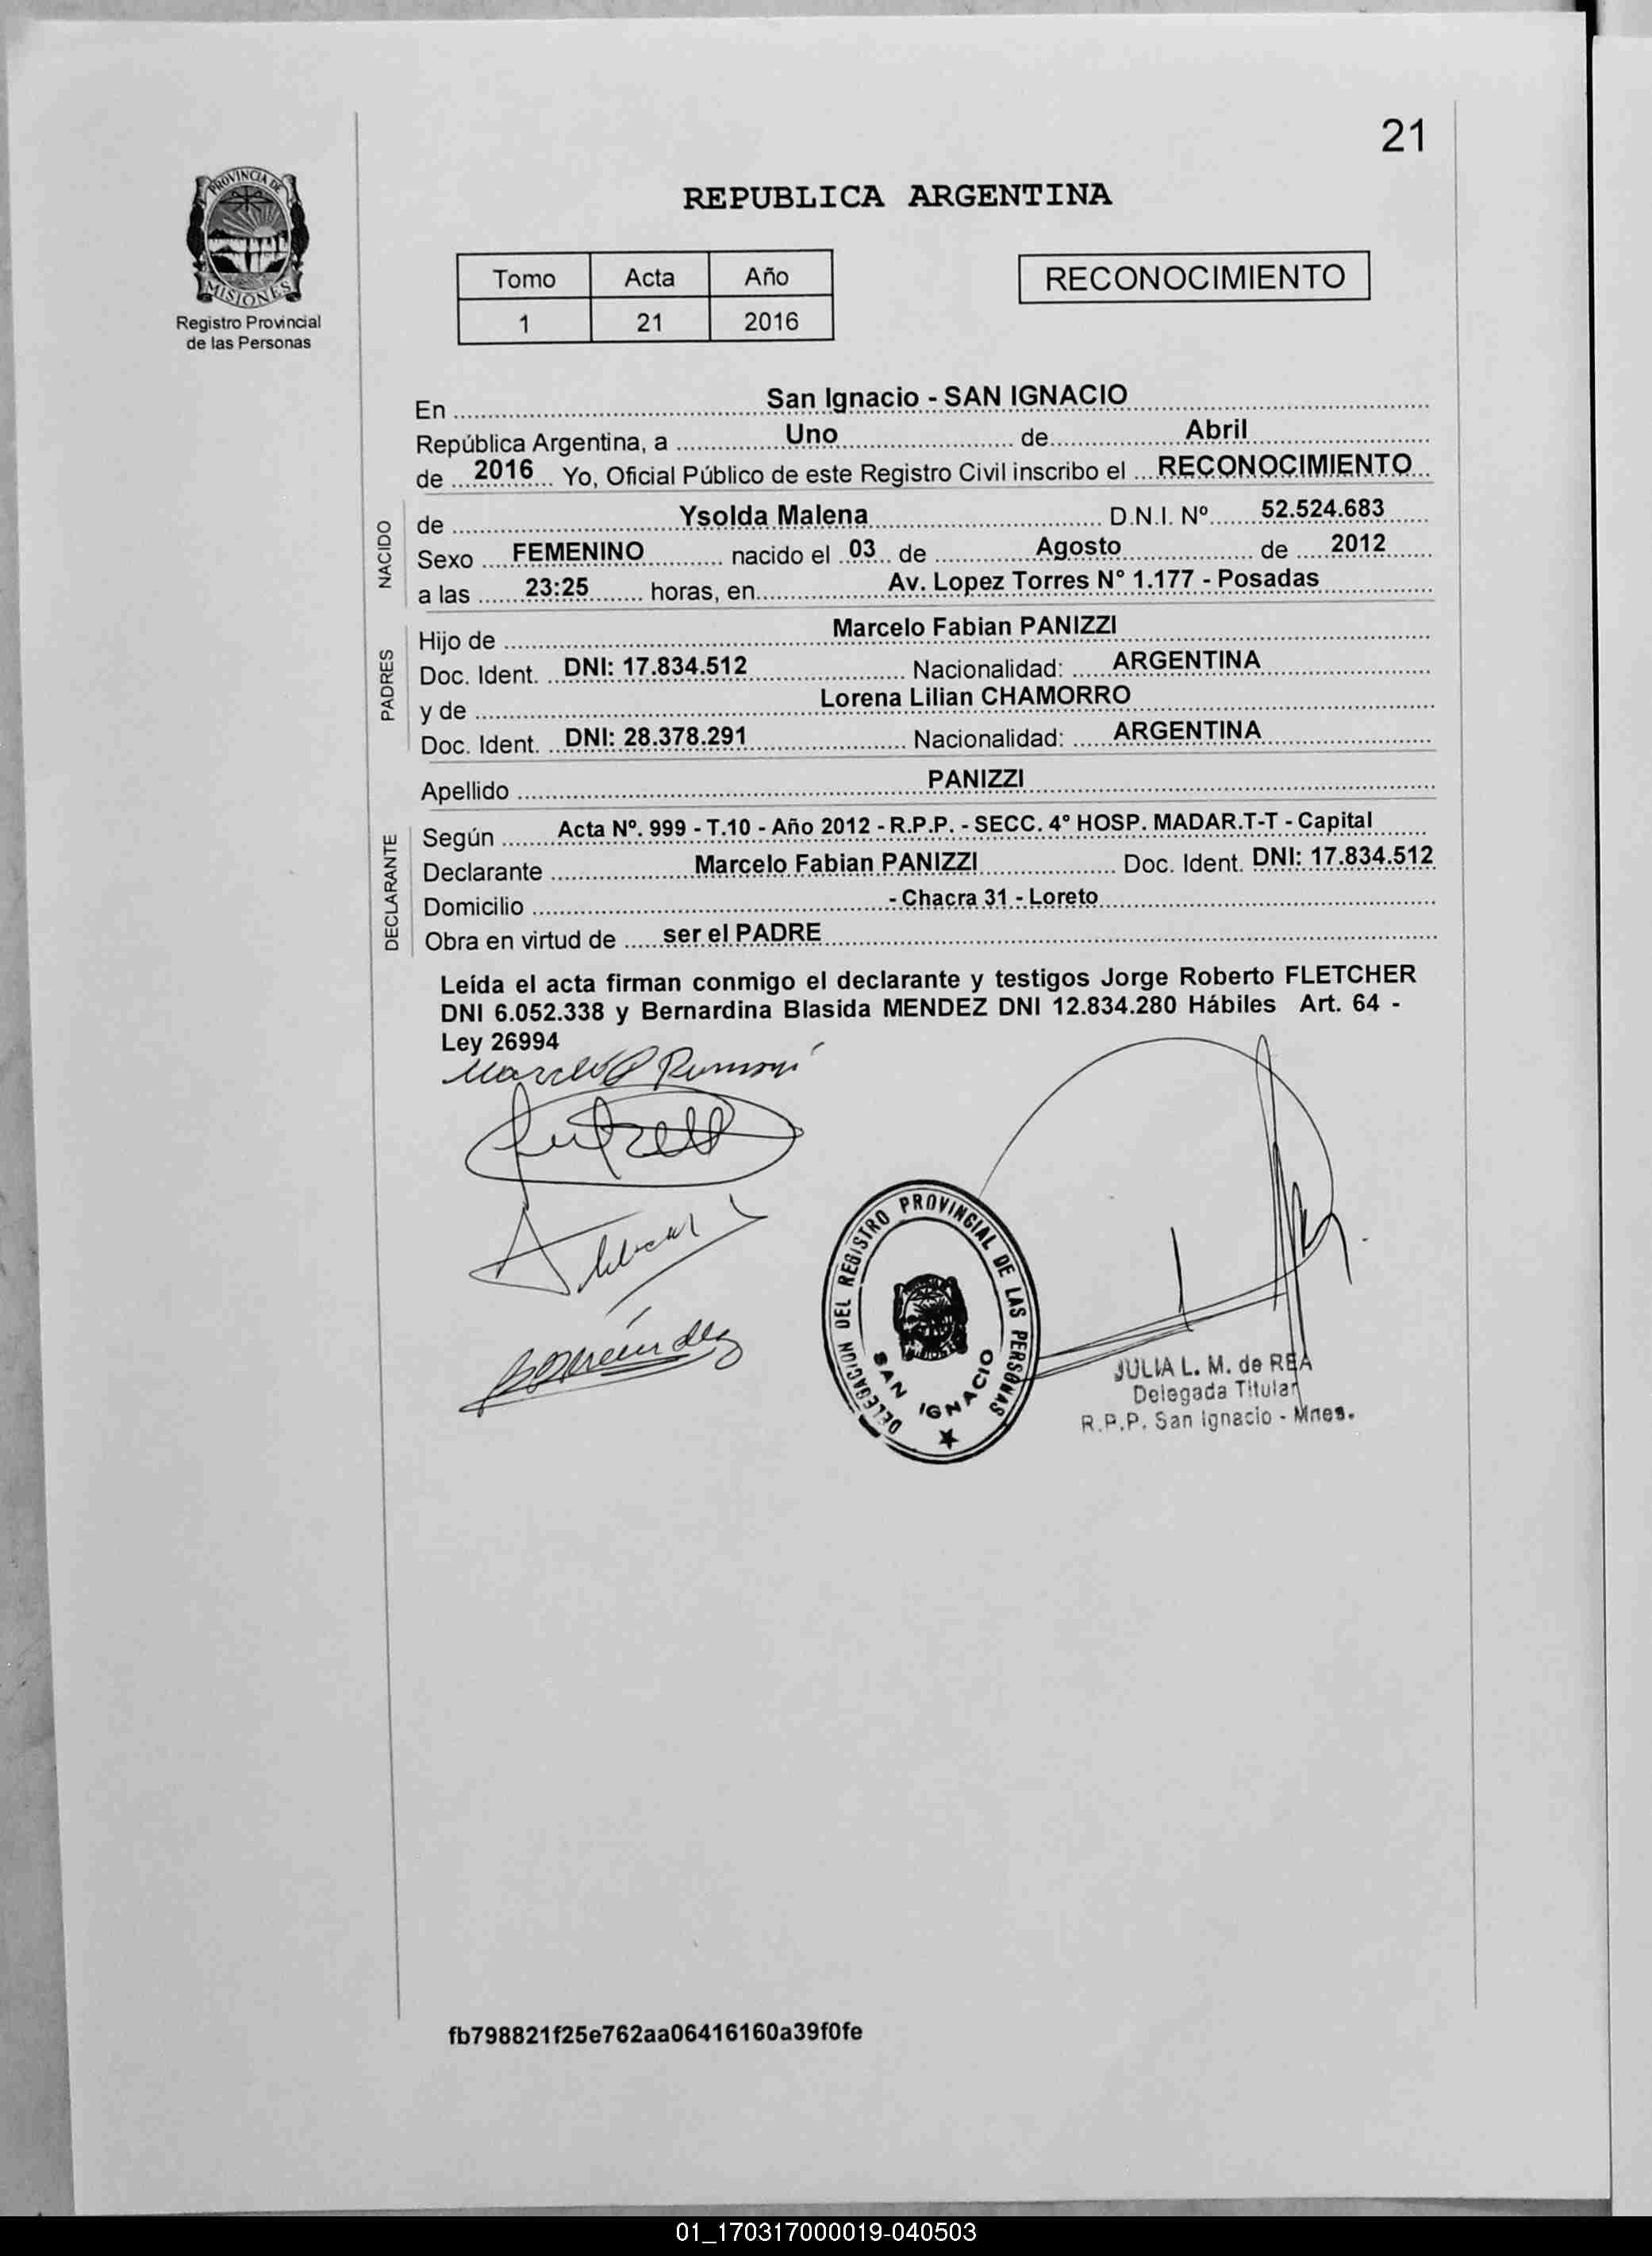 21
PROVINCIA DE
MISIONES
Registro Provincial
de las Personas
REPUBLICA ARGENTINA
Tomo Acta Año
1 21 2016
RECONOCIMIENTO
En San Ignacio - SAN IGNACIO
República Argentina, a Uno de Abril
de 2016 Yo, Oficial Público de este Registro Civil inscribo el RECONOCIMIENTO
NACIDO
de Ysolda Malena D.N.I. Nº 52.524.683
Sexo FEMENINO nacido el 03 de Agosto de 2012
a las 23:25 horas, en Av. Lopez Torres N° 1.177 - Posadas
PADRES
Hijo de Marcelo Fabian PANIZZI
Doc. Ident. DNI: 17.834.512 Nacionalidad: ARGENTINA
y de Lorena Lilian CHAMORRO
Doc. Ident. DNI: 28.378.291 Nacionalidad: ARGENTINA
Apellido PANIZZI
DECLARANTE
Según Acta Nº. 999 - T.10 - Año 2012 - R.P.P. - SECC. 4° HOSP. MADAR.T-T - Capital
Declarante Marcelo Fabian PANIZZI Doc. Ident. DNI: 17.834.512
Domicilio - Chacra 31 - Loreto
Obra en virtud de ser el PADRE
Leída el acta firman conmigo el declarante y testigos Jorge Roberto FLETCHER
DNI 6.052.338 y Bernardina Blasida MENDEZ DNI 12.834.280 Hábiles Art. 64 -
Ley 26994
DELEGACION DEL REGISTRO PROVINCIAL DE LAS PERSONAS
SAN IGNACIO
JULIA L. M. de REA
Delegada Titular
R.P.P. San Ignacio - Mnes.
fb798821f25e762aa06416160a39f0fe
01_170317000019-040503